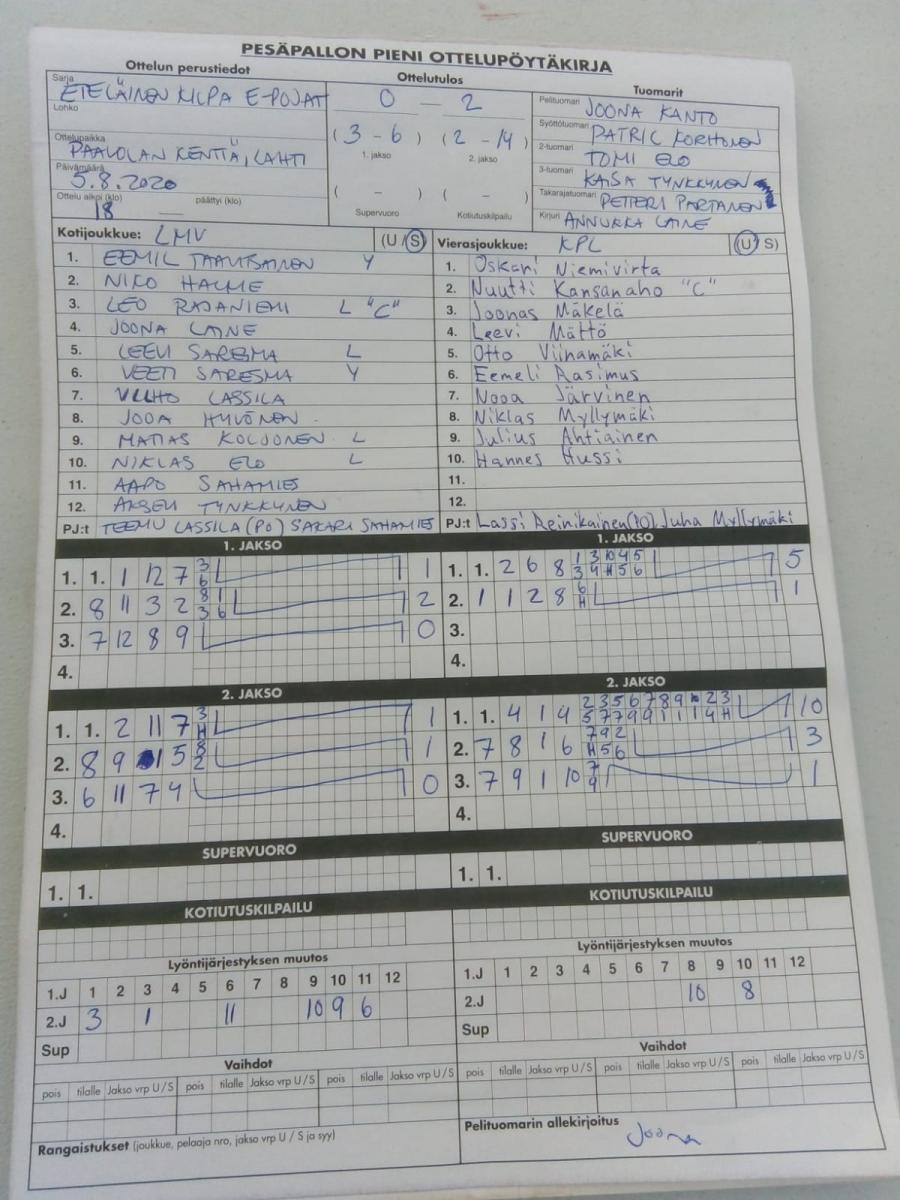 PESÄPALLON PIENI OTTELUPÖYTÄKIRJA
Ottelun perustiedot
Ottelutulos
Tuomarit
Sarja ETELÄINEN KILPA E-POJAT
Lohko
Ottelupaikka PAAVOLAN KENTTÄ, LAHTI
Päivämäärä 5.8.2020
Ottelu alkoi (klo) 18 — päättyi (klo)
0 – 2
(3 – 6) (2 – 14)
1. jakso 2. jakso
( – ) ( – )
Supervuoro Kotiutuskilpailu
Pelituomari JOONA KANTO
Syöttötuomari PATRIC KORHONEN
2-tuomari TOMI ELO
3-tuomari KAISA TYNKKYNEN
Takarajatuomari PETTERI PARTANEN
Kirjuri ANNUKKA LAINE
Kotijoukkue: LMV (U/S)
1. EEMIL Y
2. NIKO HALME
3. LEO RAJANIEMI L "C"
4. JOONA LAINE
5. LEEVI SARESMA L
6. VEETI SARESMA Y
7. LASSILA
8. JOOA HYVÖNEN
9. MATIAS KOLJONEN L
10. NIKLAS ELO L
11. AAPO SAHAMIES
12. AKSELI TYNKKYNEN
PJ:t TEEMU LASSILA (PO) SAKARI SAHAMIES
Vierasjoukkue: KPL (U/S)
1. Oskari Niemivirta
2. Nuutti Kansanaho "C"
3. Joonas Mäkelä
4. Leevi Mättö
5. Otto Viinamäki
6. Eemeli Rasimus
7. Nooa Järvinen
8. Niklas Myllymäki
9. Julius Ahtiainen
10. Hannes Hussi
11.
12.
PJ:t Lassi Reinikainen (PO) Juha Myllymäki
1. JAKSO
1. 1. 1 12 7 3 6 1
2. 8 11 3 2 8 1 3 6 2
3. 7 12 8 9 0
4.
1. JAKSO
1. 1. 2 6 8 1 3 10 4 5 3 4 H 5 6 5
2. 1 1 2 8 6 H 1
3.
4.
2. JAKSO
1. 1. 2 11 7 3 H 1
2. 8 9 1 5 8 2 1
3. 6 11 7 4 0
4.
2. JAKSO
1. 1. 4 1 4 10
2. 7 8 1 6 7 9 2 H 5 6 3
3. 7 9 1 10 7 9 1
4.
SUPERVUORO
1. 1.
SUPERVUORO
1. 1.
KOTIUTUSKILPAILU
KOTIUTUSKILPAILU
Lyöntijärjestyksen muutos
1.J 1 2 3 4 5 6 7 8 9 10 11 12
2.J 3 1 11 10 9 6
Sup
Lyöntijärjestyksen muutos
1.J 1 2 3 4 5 6 7 8 9 10 11 12
2.J 10 8
Sup
Vaihdot
pois tilalle Jakso vrp U/S pois tilalle Jakso vrp U/S pois tilalle Jakso vrp U/S
Vaihdot
pois tilalle Jakso vrp U/S pois tilalle Jakso vrp U/S pois tilalle Jakso vrp U/S
Rangaistukset (joukkue, pelaaja nro, jakso vrp U / S ja syy)
Pelituomarin allekirjoitus
Joona